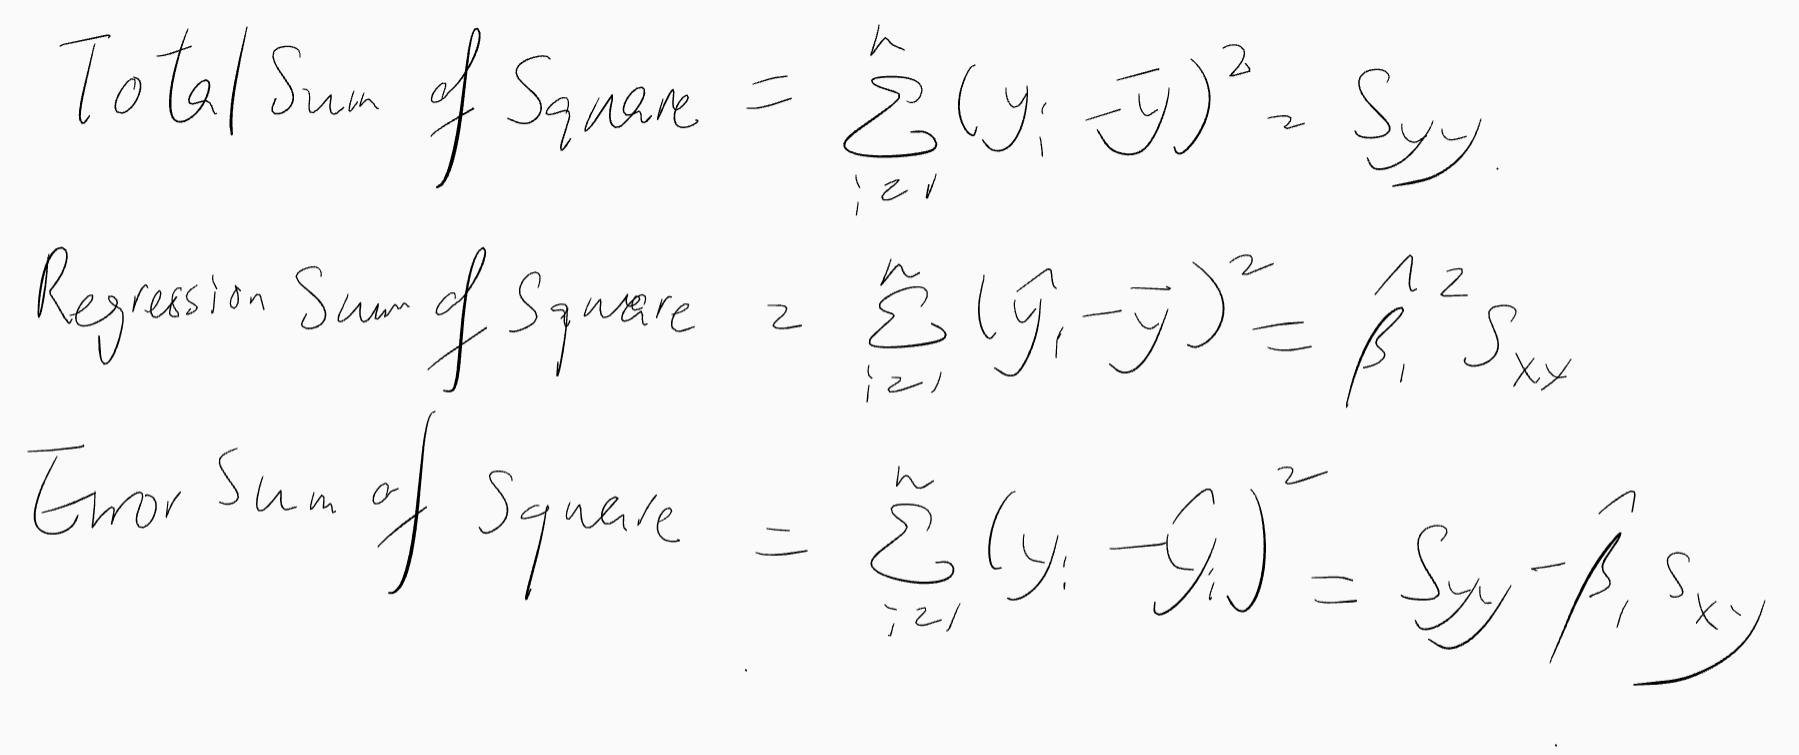 Total Sum of Square = \sum_{i=1}^{n} (y_i - \bar{y})^2 = S_{yy}.
Regression Sum of Square = \sum_{i=1}^{n} (\hat{y}_i - \bar{y})^2 = \hat{\beta}_1^2 S_{xy}
Error Sum of Square = \sum_{i=1}^{n} (y_i - \hat{y}_i)^2 = S_{yy} - \hat{\beta}_1 S_{xy}